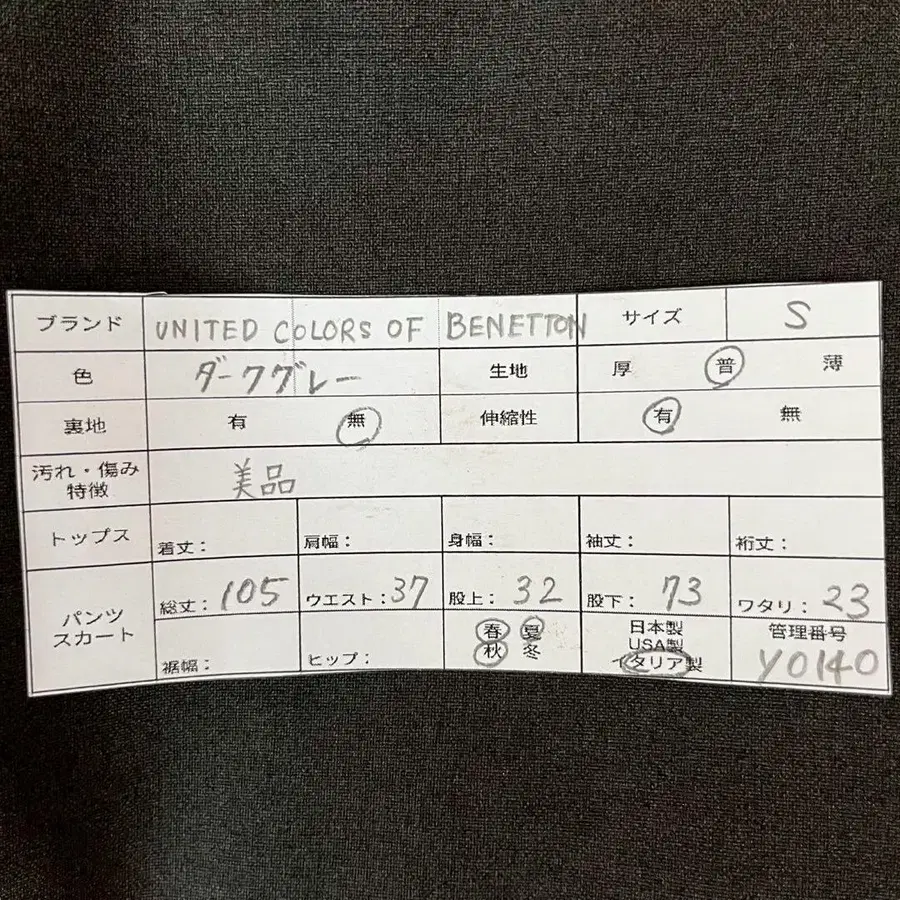 ブランド UNITED COLORS OF BENETTON サイズ S
色 ダークグレー 生地 厚 普 薄
裏地 有 無 伸縮性 有 無
汚れ・傷み
特徴 美品
トップス 着丈: 肩幅: 身幅: 袖丈: 裄丈:
パンツ
スカート
総丈:105 ウエスト:37 股上:32 股下:73 ワタリ:23
裾幅: ヒップ:
春 夏
秋 冬
日本製
USA製
イタリア製
管理番号
Y0140